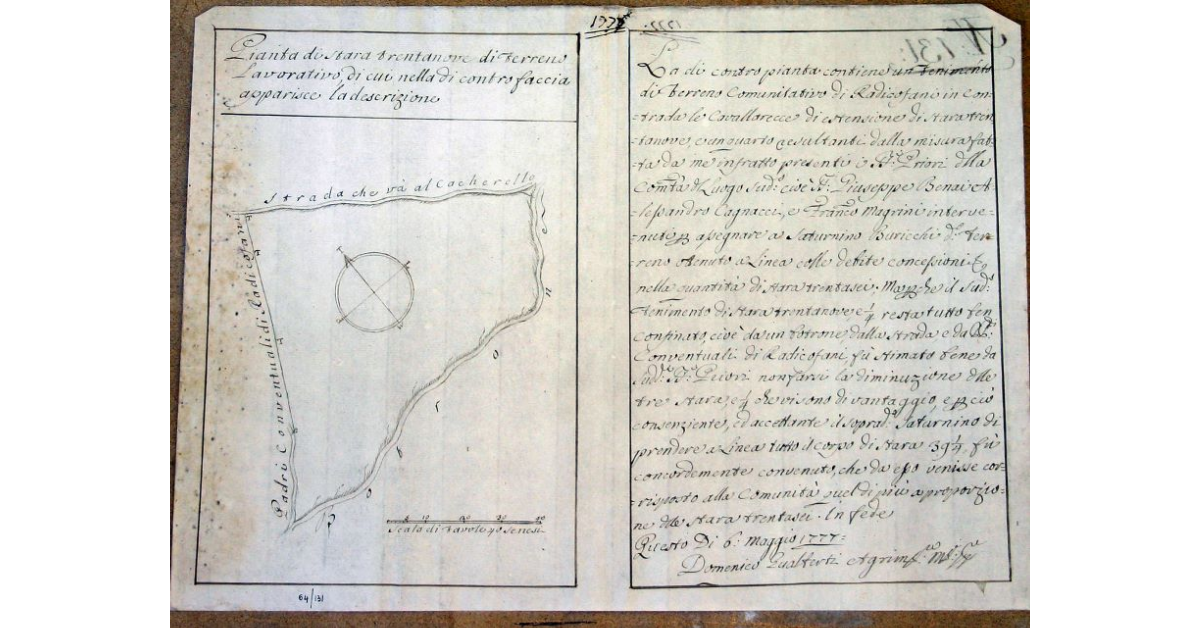 1777
N: 131:
Pianta di stara trentanove di terreno
Lavorativo, di cui nella di contro faccia
apparisce la descrizione
Strada che và al Cacherello
Padri Conventuali di Radicofani
Scala di tavole 40 Senesi
10 20 30 40
64/131
La di contro pianta contiene un tenimento
di terreno Comunitativo di Radicofani in Con=
=trada le Cavallarecce di estensione di stara tren
=tanove, e un quarto resultanti dalla misura fat=
=ta da me infratto presenti i SS:ri Priori dlla
Comtà dl Luogo Sudo: cioè Sr: Giuseppe Benai A=
=lessandro Cagnacci, e Franco Magrini interve=
=nuti p asegnare a Saturnino Buricchi do: ter=
=reno otenuto a Linea colle debite concessioni
nella quantità di stara trentasei. Mapche il Sudo:
tenimento di stara trentanove, e 1/4 resta tutto ben
confinato, cioè da un botrone, dalla strada e da
Conventuali di Radicofani fù stimato bene da
Sudi: SS:ri Priori non farsi la diminuzione dlle
tre stara, e 1/4 che vi sono di vantaggio, e p ciò
consenziente, ed accettante il soprado: Saturnino di
prendere a Linea tutto il corpo di stara 39 1/4, fù
concordemente convenuto, che da epo venisse cor=
=risposto alla Comunità quel di più a proporzio=
=ne dlle stara trentasei. In fede
Questo Di 6: Maggio 1777:
Domenico Gualterii Agrim